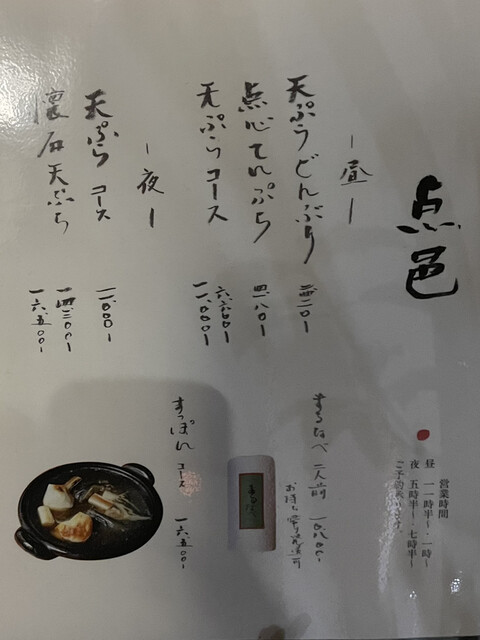 点邑
営業時間
昼 一一時半〜一時
夜 五時半〜七時半
ー昼ー
天ぷらどんぶり
点心てんぷら 四一八〇ー
天ぷらコース 六六〇〇ー
一一、〇〇〇ー
ー夜ー
天ぷらコース 一一、〇〇〇ー
懐石天ぷら 一四三〇〇ー
一六、五〇〇ー
まるなべ 二人前
お持ち帰り
すっぽんコース 一六、五〇〇ー